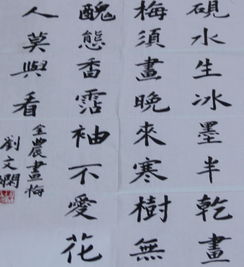 硯水生冰墨半乾畫
梅須畫晚來寒樹無
醜態香霑袖不愛花
人莫與看
金農畫梅
劉文